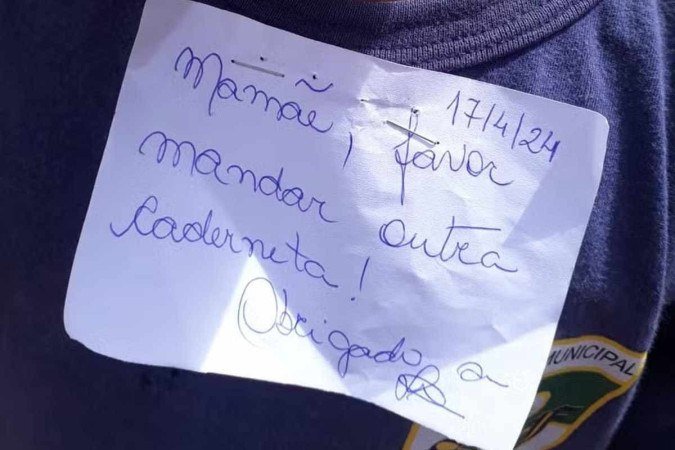 17/4/24
Mamãe, favor
mandar outra
caderneta!
Obrigado, a
MUNICIPAL